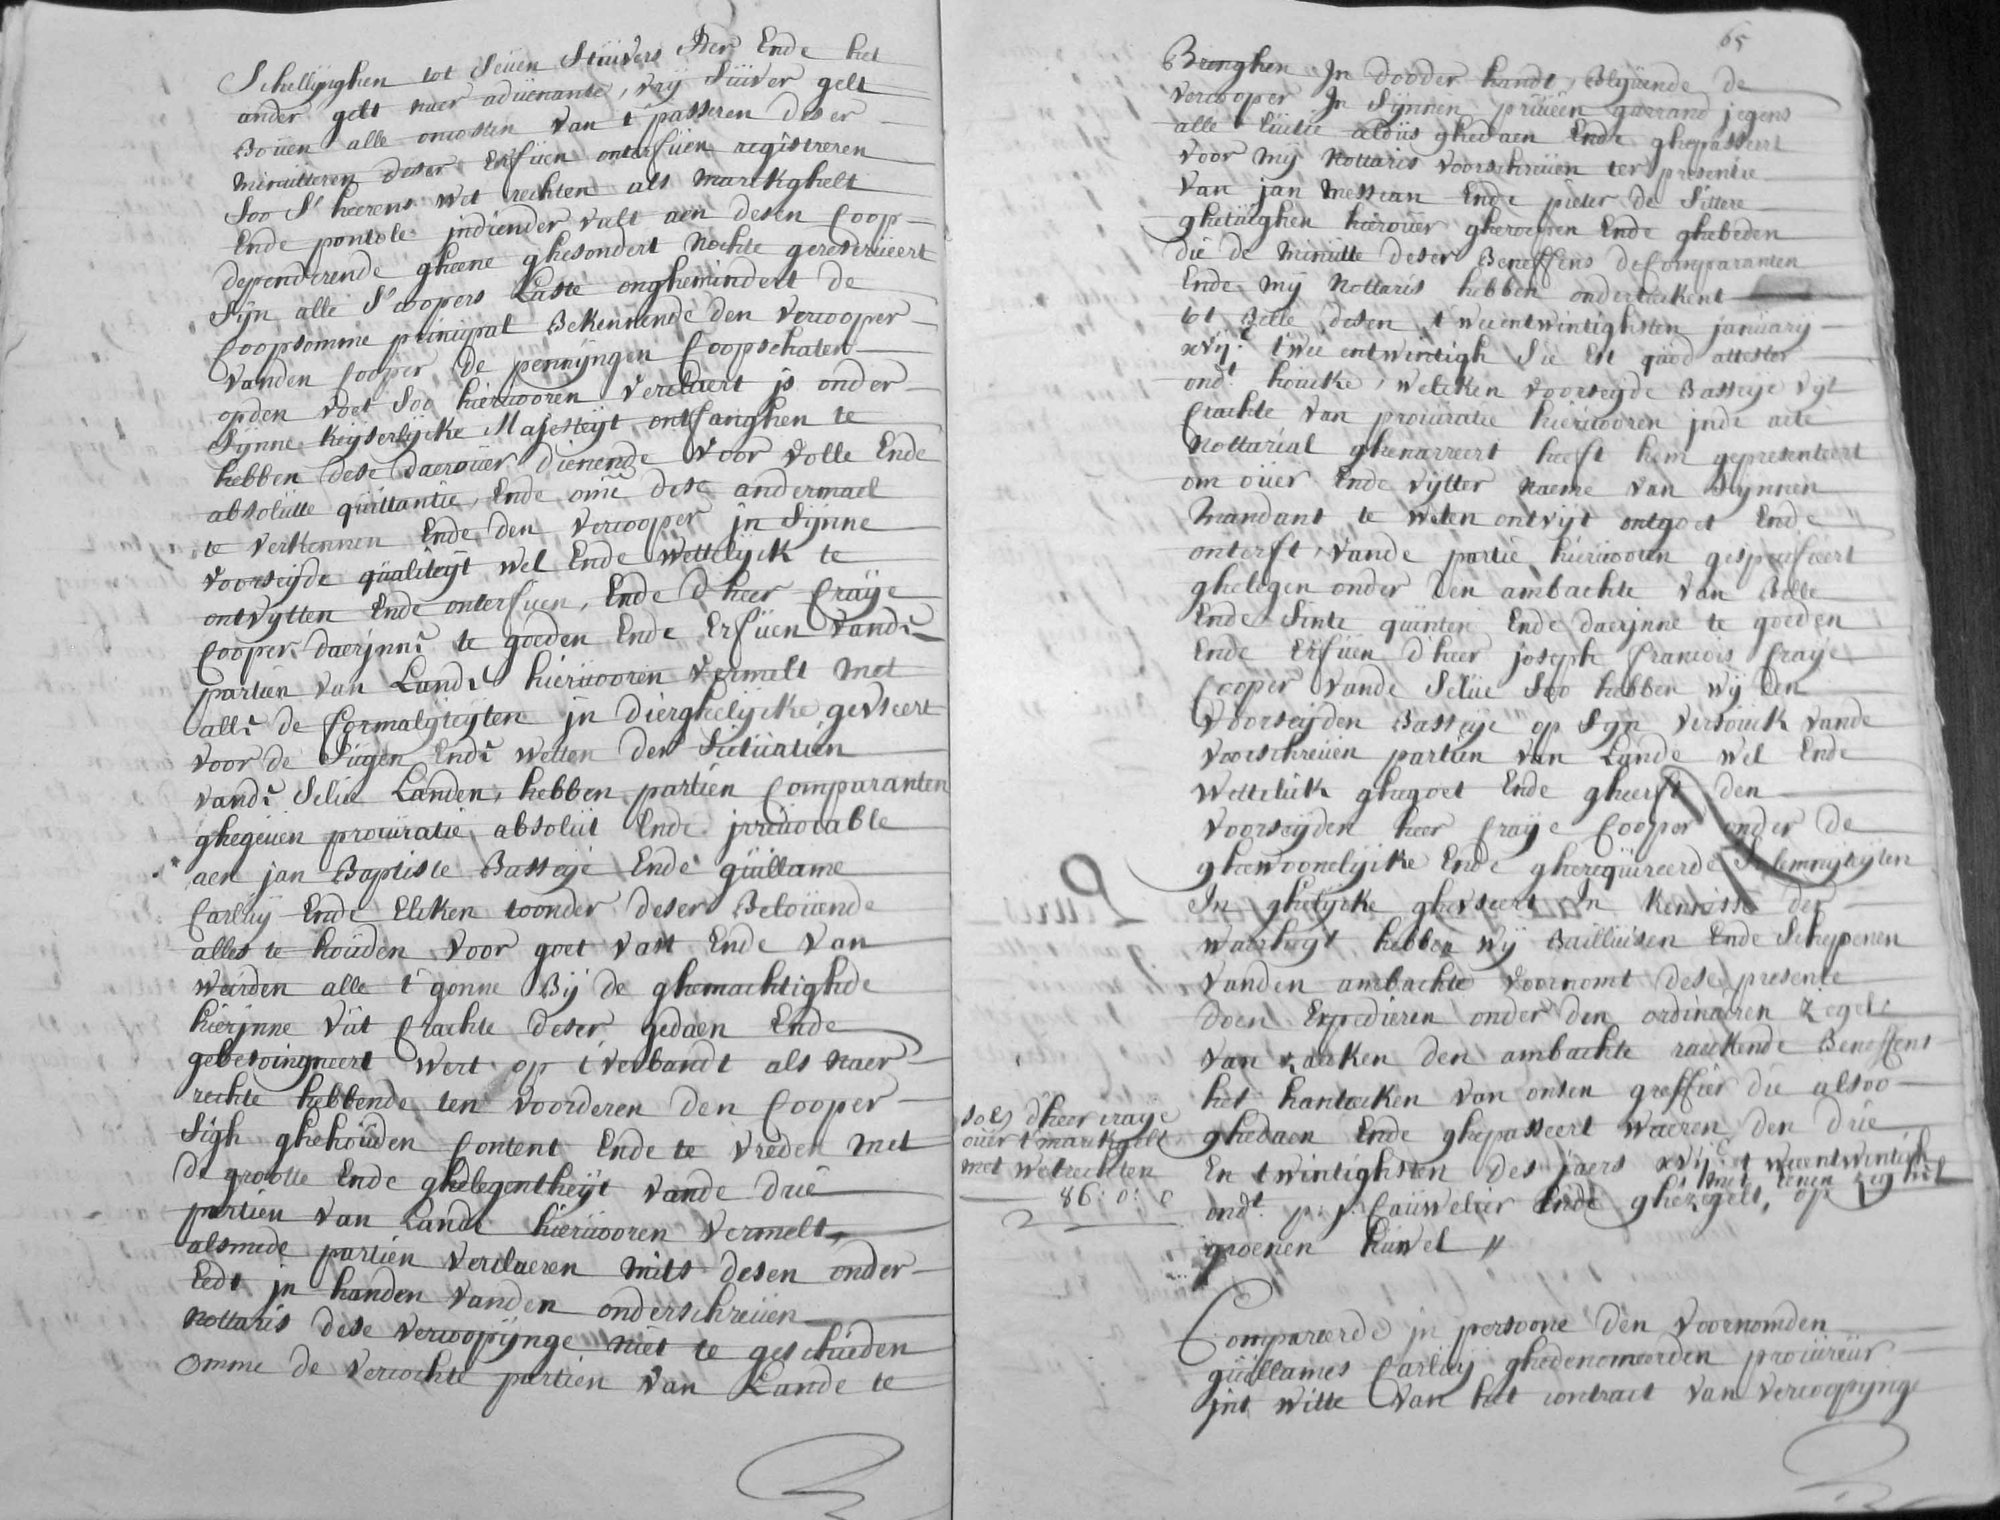 Schellynghen tot Seuen Stuivers Ider Ende het
ander gelt naer aduenante, vry Suver gelt
Bouen alle oncosten van t'passeren deser
minutteren deser Erfuen onterfuen registreren
Soo S'heerens wet rechten als marckghelt
Ende pontole indiender valt aen desen Coop
dependerende gheene ghesondert nochte gereserveert
Sijn alle S'coopers Laste onghemindert de
Coopsomme principal Bekennende den vercooper
vanden Cooper de pennijngen Coopschaten
op den voet Soo hiervooren verclaert is onder
Synne Keyserlycke Majesteyt ontfanghen te
hebben dese daerouer dienende voor volle Ende
absolutte quittantie, Ende omme dese andermael
te verkennen Ende den vercooper in Sijnne
voorseijde qualiteijt wel Ende wettelijck te
ontvytten Ende onterfuen, Ende d'heer Craije
Cooper daerjnne te goeden Ende Erfuen vande
partien van Lande hiervooren vermelt met
alle de formalyteyten in dierghelycke geuseert
voor de Sugen Ende wetten der Situatien
vande Selue Landen, hebben partien Comparanten
ghegeuen procuratie absolut Ende irreuocable
aen jan Baptiste Basseije Ende guillame
Carluij Ende Elcken toonder deser Belouende
alles te houden voor goet vast Ende van
weirden alle t'gonne Bij de ghemachtighde
hierjnne uut crachte deser gedaen Ende
gebesoingneert wert op t'verbandt als naer
rechte hebbende ten voorderen den Cooper
Sigh ghehouden Content Ende te vreden met
de grootte Ende ghelegentheijt vande drie
partien van Lande hiervooren vermelt,
alsmede partien verclaeren mits desen onder
Eedt in handen vanden onderschreuen
nottaris dese vercoopijnge niet te geschieden
omme de vercochte partien van Lande te
65
Brenghen In dooder handt, Blyuende de
vercooper In Sijnnen priueen garrand jegens
alle Euictie aldus ghedaen Ende ghepasseert
voor mij nottaris voorschreuen ter presentie
van jan Messean Ende pieter de Sittere
ghetuighen hierouer gheroepen Ende ghebeden
die de minutte deser Beneffens de Comparanten
Ende mij nottaris hebben onderteekent
tot Belle desen tweentwintighsten january
xvijc tweentwintigh Sic Est quod attestor
ondt houcke, welcken voorseyde Basseije uyt
Crachte van procuratie hiervooren inde acte
nottarial ghenarreert heeft hem gepresenteert
om ouer Ende uytter naeme van Synnen
Mandant te weten ontvijt ontgoet Ende
onterft vande partie hiervooren gespecifieert
ghelegen onder den ambachte van Belle
Ende Sinte quinten Ende daerjnne te goeden
Ende Erfuen d'heer joseph francois Craije
Cooper vande Selue Soo hebben wij den
voorseijden Basseije op Syn versouck vande
voorschreuen partien van Lande wel Ende
wettelick ghegoet Ende gheerft den
voorseijden heer Craije Cooper onder de
ghewoonelycke Ende gherequireerde Solemnyteyten
In ghelycke gheuseert In kennisse der
waerheyt hebben wij Bailliuwen Ende Schepenen
vanden ambachte voornomt dese presente
doen Expedieren onder den ordinairen zegele
van zaeken den ambachte raeckende Beneffens
het hanteeken van onsen greffier die alsoo
ghedaen Ende ghepasseert waeren den drie
En twintighsten des jaers xvijc tweentwintich
ondt p: j: Cauwelier Ende ghezegelt, op
met eenen zeghel
groenen huwel //
sols d'heer craije
ouer t'marckgelt
met wetrechten
86: 0: 0
Compareerde in persoone den voornomden
guillames Carluij ghedenomeerden procureur
int witte van het contract van vercoopijnge